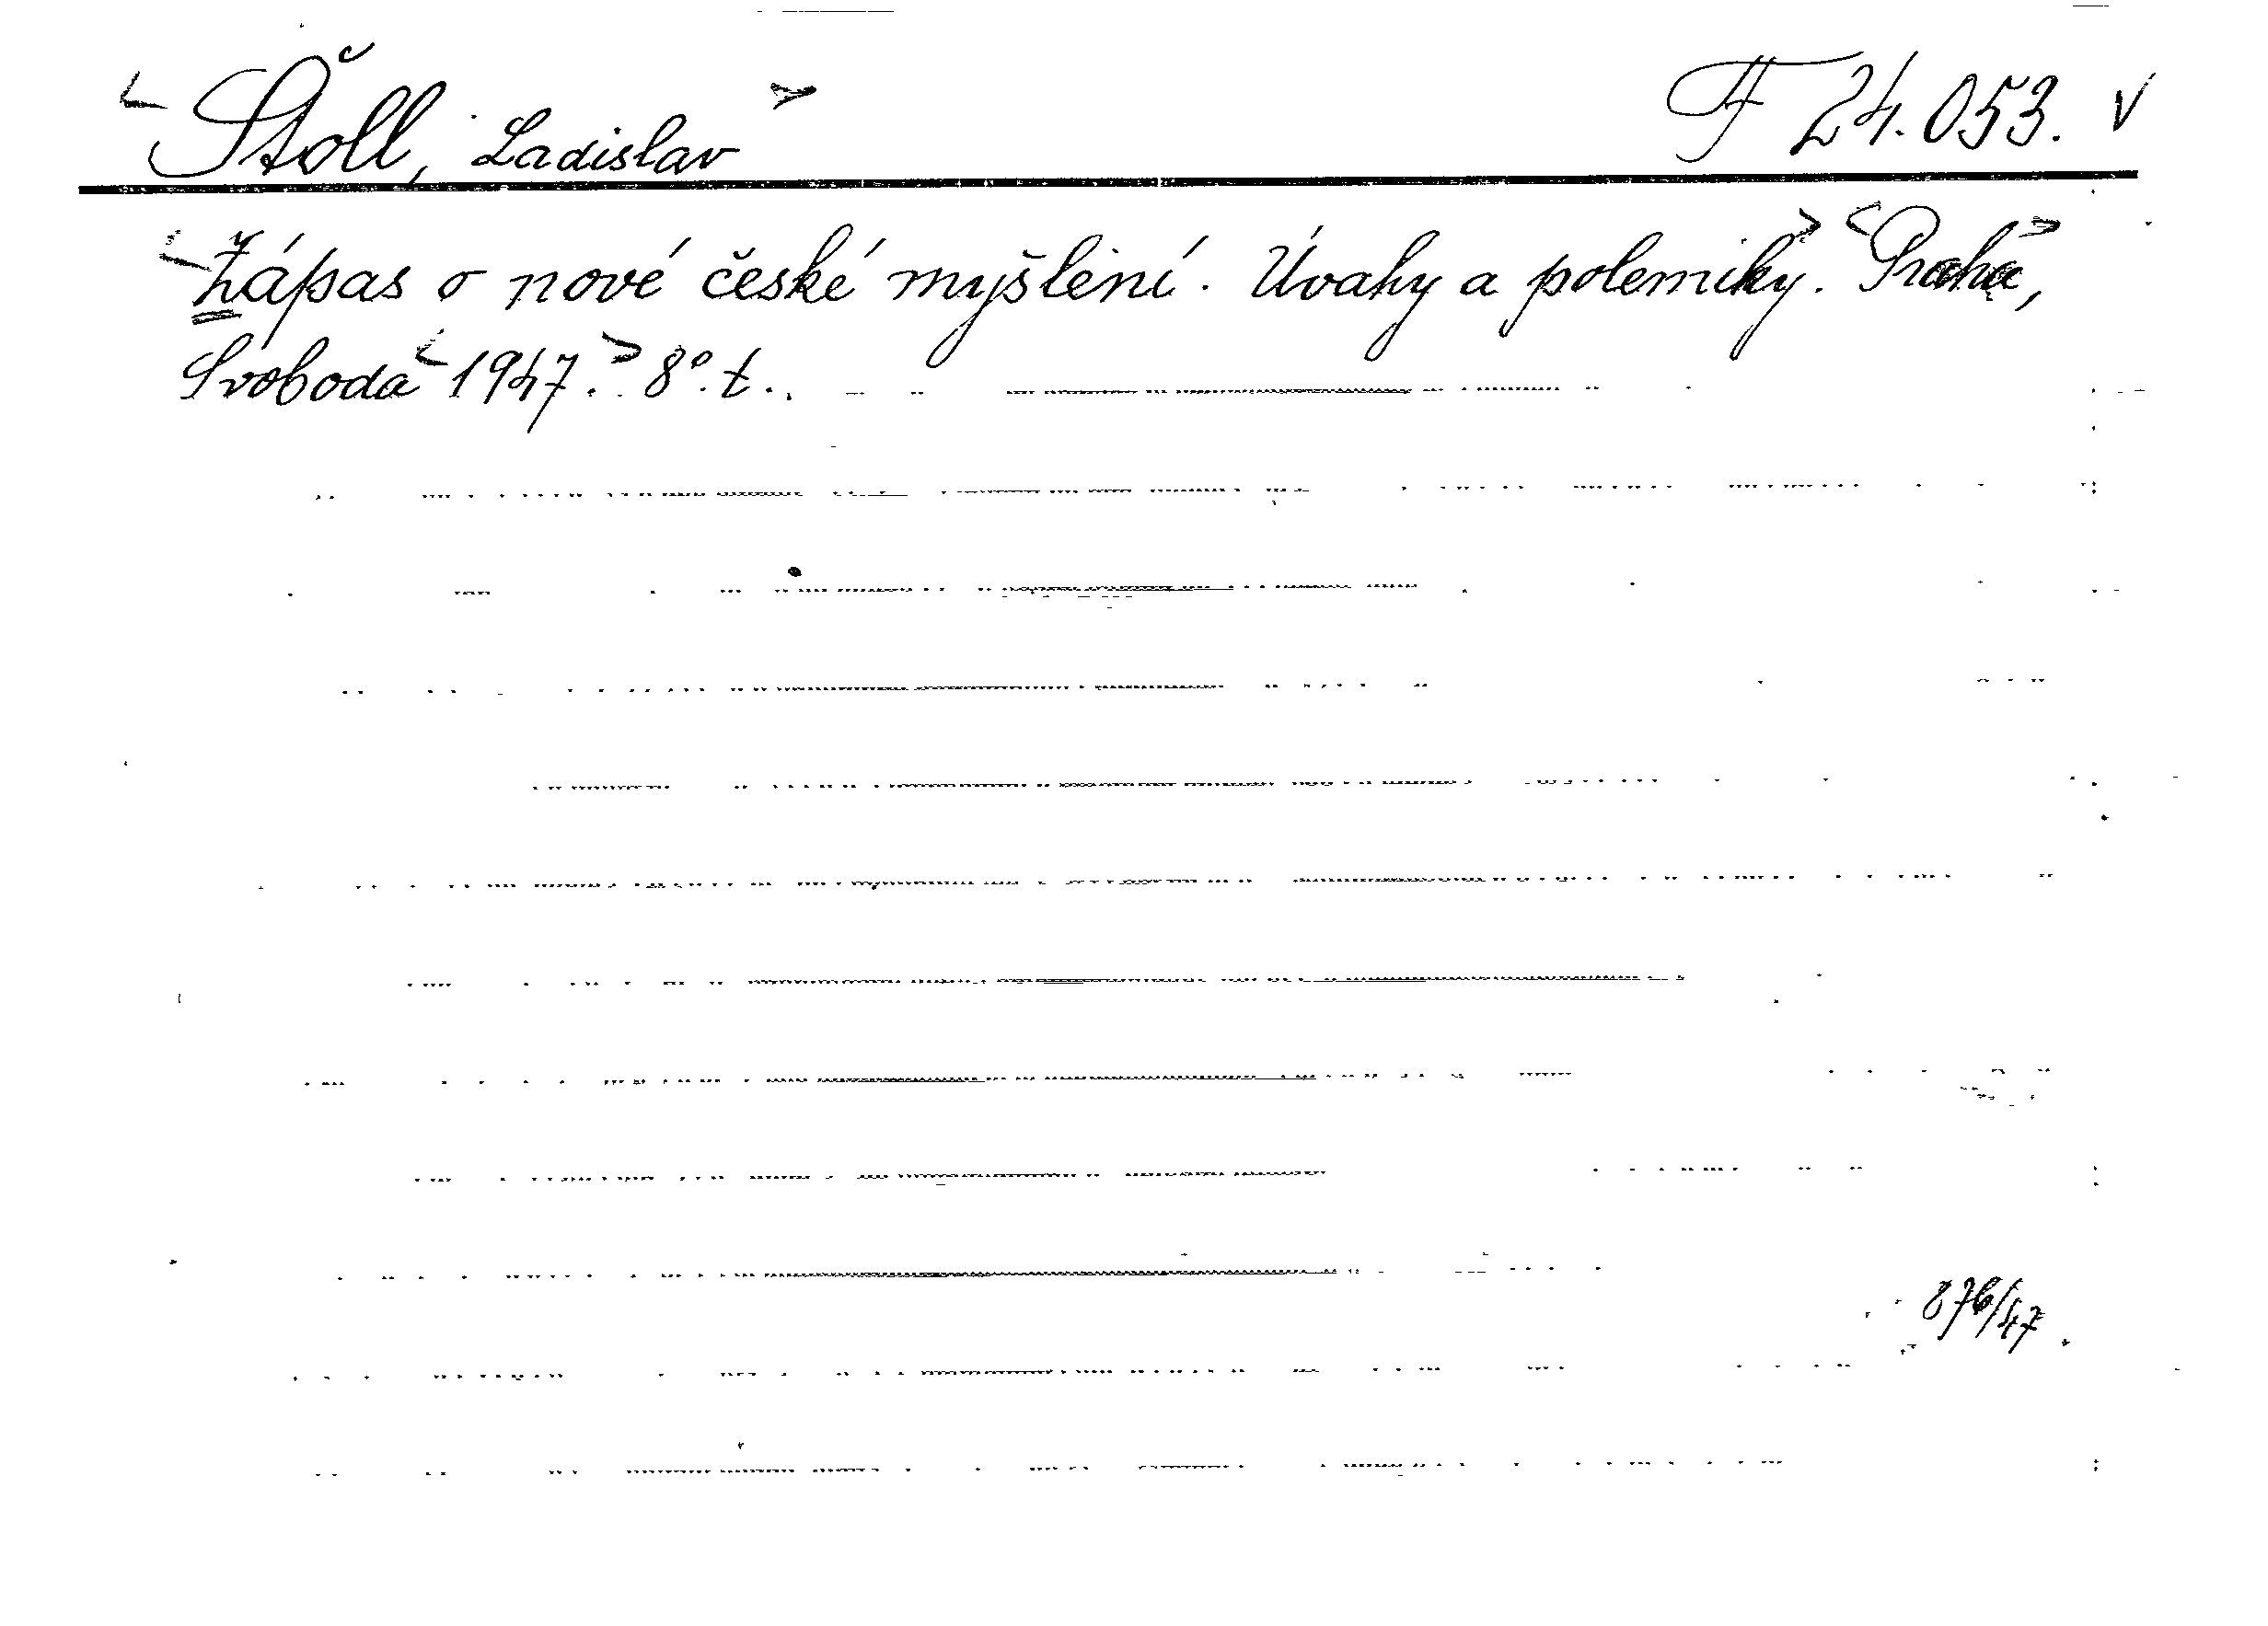 <Štoll, Ladislav> F 24.053. v
<Zápas o nové české myšlení. Úvahy a polemiky.> <Praha>,
Svoboda <1947.> 8°. t.
876/47.